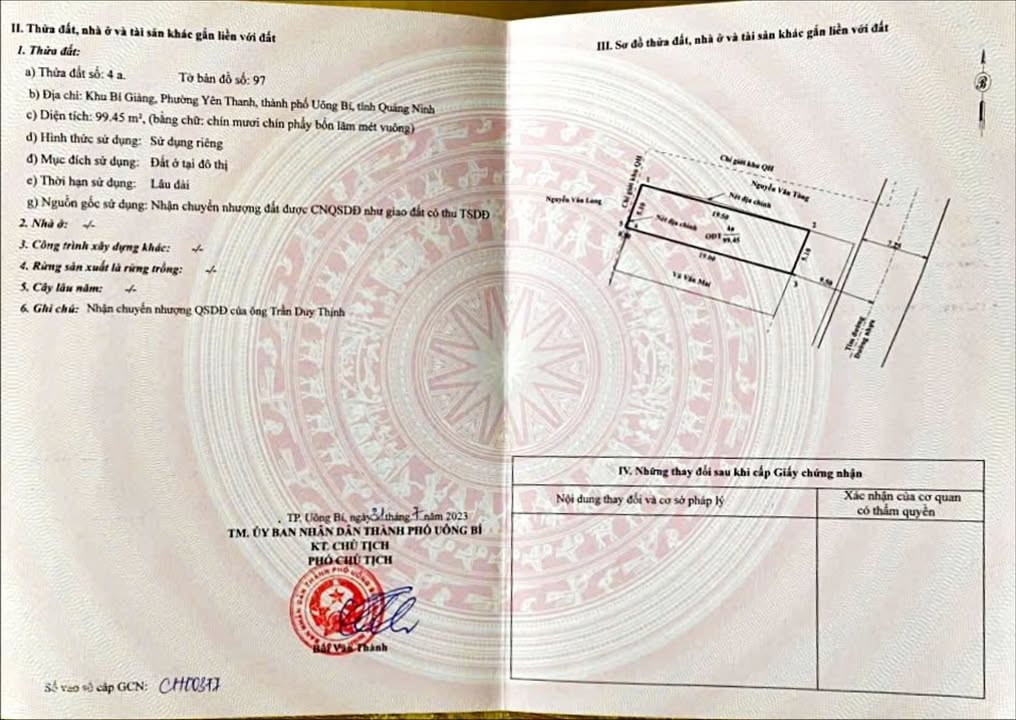 II. Thửa đất, nhà ở và tài sản khác gắn liền với đất
1. Thửa đất:
a) Thửa đất số: 4 a. Tờ bản đồ số: 97
b) Địa chỉ: Khu Bí Giàng, Phường Yên Thanh, thành phố Uông Bí, tỉnh Quảng Ninh
c) Diện tích: 99.45 m², (bằng chữ: chín mươi chín phẩy bốn lăm mét vuông)
d) Hình thức sử dụng: Sử dụng riêng
đ) Mục đích sử dụng: Đất ở tại đô thị
e) Thời hạn sử dụng: Lâu dài
g) Nguồn gốc sử dụng: Nhận chuyển nhượng đất được CNQSDĐ như giao đất có thu TSDĐ
2. Nhà ở: -/-
3. Công trình xây dựng khác: -/-
4. Rừng sản xuất là rừng trồng: -/-
5. Cây lâu năm: -/-
6. Ghi chú: Nhận chuyển nhượng QSDĐ của ông Trần Duy Thịnh
TP. Uông Bí, ngày 31 tháng 7 năm 2023
TM. ỦY BAN NHÂN DÂN THÀNH PHỐ UÔNG BÍ
KT. CHỦ TỊCH
PHÓ CHỦ TỊCH
Bùi Văn Thành
Số vào sổ cấp GCN: CH00377
III. Sơ đồ thửa đất, nhà ở và tài sản khác gắn liền với đất
B
Chỉ giới khu QH
Chỉ giới khu QH
Nguyễn Văn Tòng
Nguyễn Văn Long
Nét địa chính
19.50
1
2
Nét địa chính
ODT 4a
99.45
5
4
19.00
5.10
3
Vũ Văn Mai
7.25
9.50
Tim đường
Đường nhựa
IV. Những thay đổi sau khi cấp Giấy chứng nhận
Nội dung thay đổi và cơ sở pháp lý
Xác nhận của cơ quan
có thẩm quyền